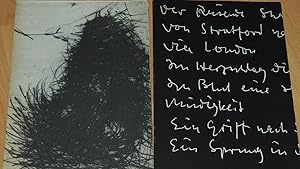 Der Reisende Sh
von Stratford na
vier London
den Herzschlag di
den Blut eine d
Müdigkeit
Ein Griff nach
Ein Sprung in